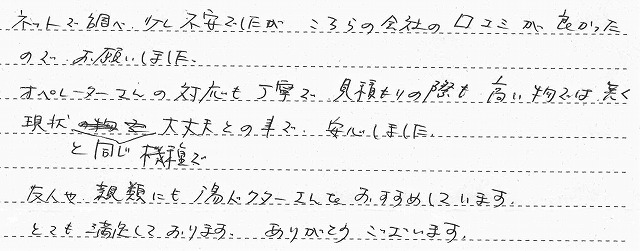 ネットで調べ、少し不安でしたが こちらの会社の口コミが良かった
ので、お願いしました。
オペレーターさんの対応も丁寧で 見積もりの際も 高い物では無く
現状と同じ機種で大丈夫との事で、安心しました。
友人や親類にも湯ドクターさんを おすすめしています。
とても満足しております。 ありがとうございます。